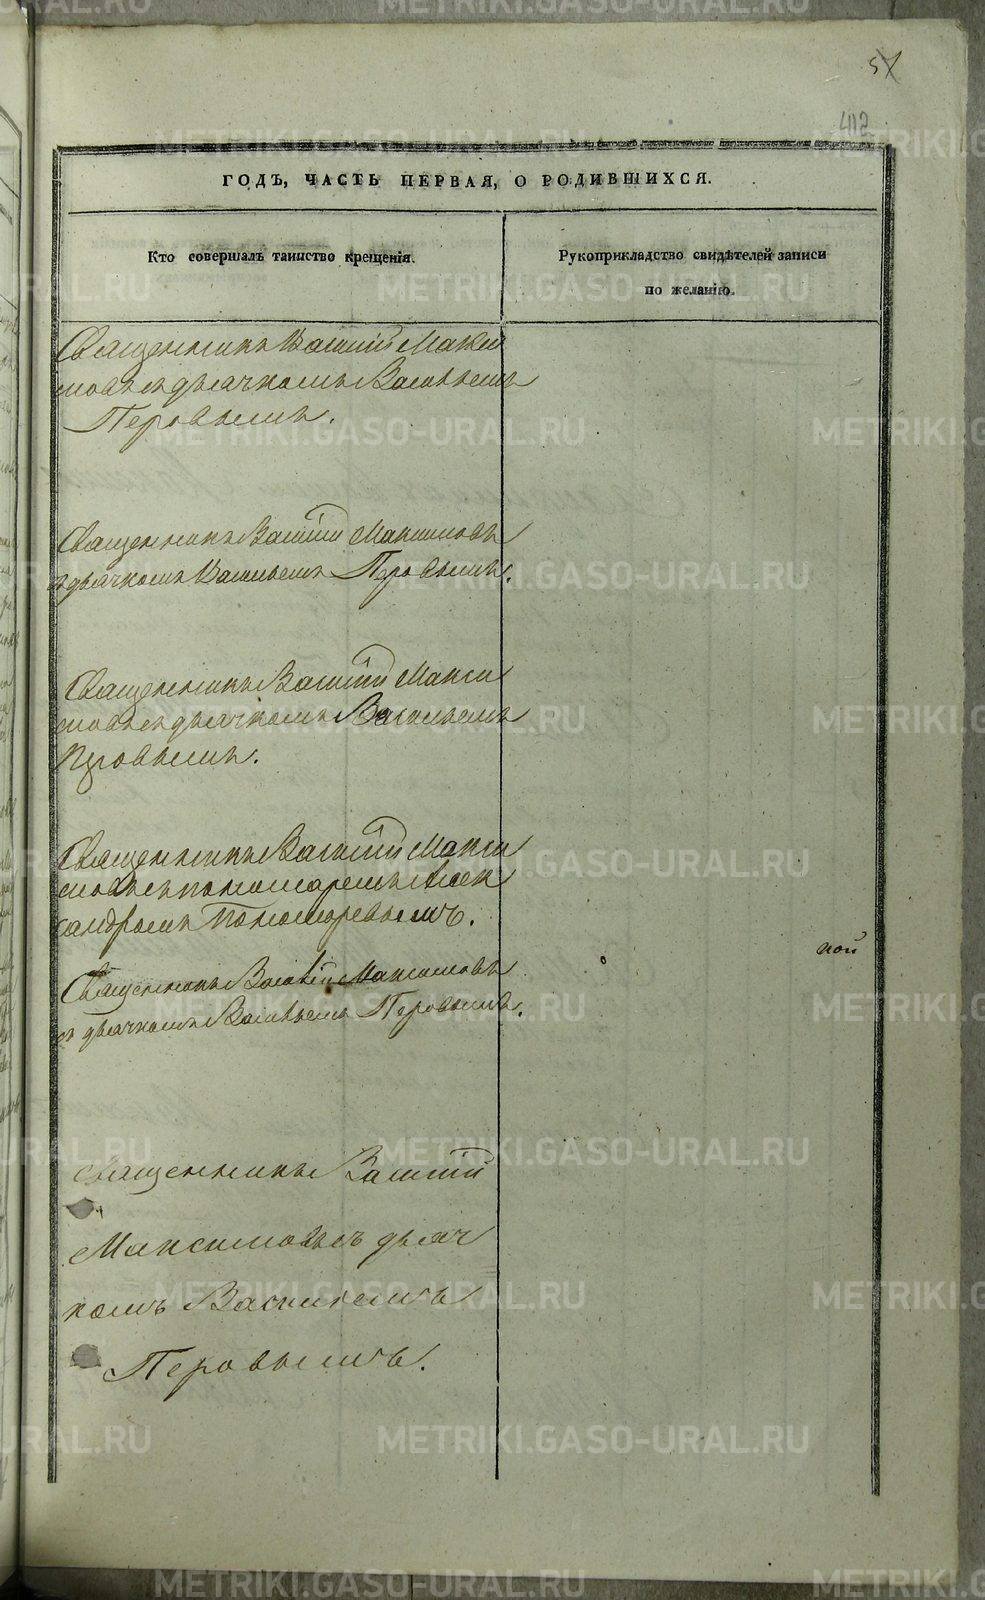 57
402
ГОДЪ, ЧАСТЬ ПЕРВАЯ, О РОДИВШИХСЯ.
Кто совершалъ таинство крещенія.
Рукоприкладство свидѣтелей записи
по желанію.
Священникъ Василій Макси
мовъ съ дьячкомъ Васильемъ
Перовымъ.
Священникъ Василій Максимовъ
съ дьячкомъ Васильемъ Перовымъ.
Священникъ Василій Макси
мовъ съ дьячкомъ Васильемъ
Перовымъ.
Священникъ Василій Макси
мовъ съ пономаремъ Алек
сандромъ Пономаревымъ.
Священникъ Василій Максимовъ
съ дьячкомъ Васильемъ Перовымъ.
ной
Священникъ Василій
Максимовъ съ дьяч
комъ Васильемъ
Перовымъ.
METRIKI.GASO-URAL.RU